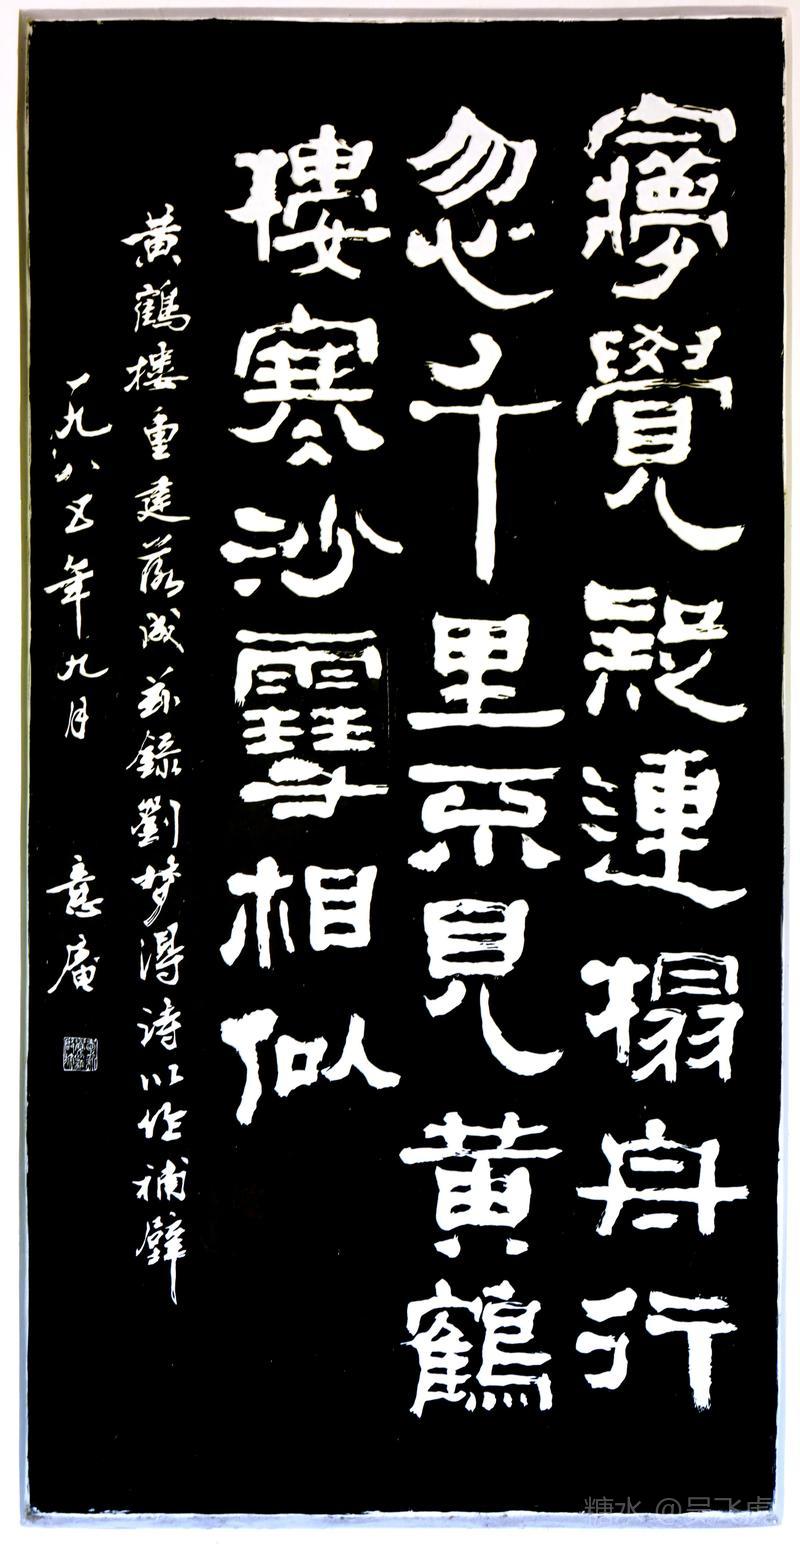 㝱覺疑連榻舟行
忽千里不見黄鶴
樓寒沙雪相似
黄鶴樓重建落成兹録劉梦得詩以作補壁
一九八五年九月 意庵
糖水 @吴飞虎